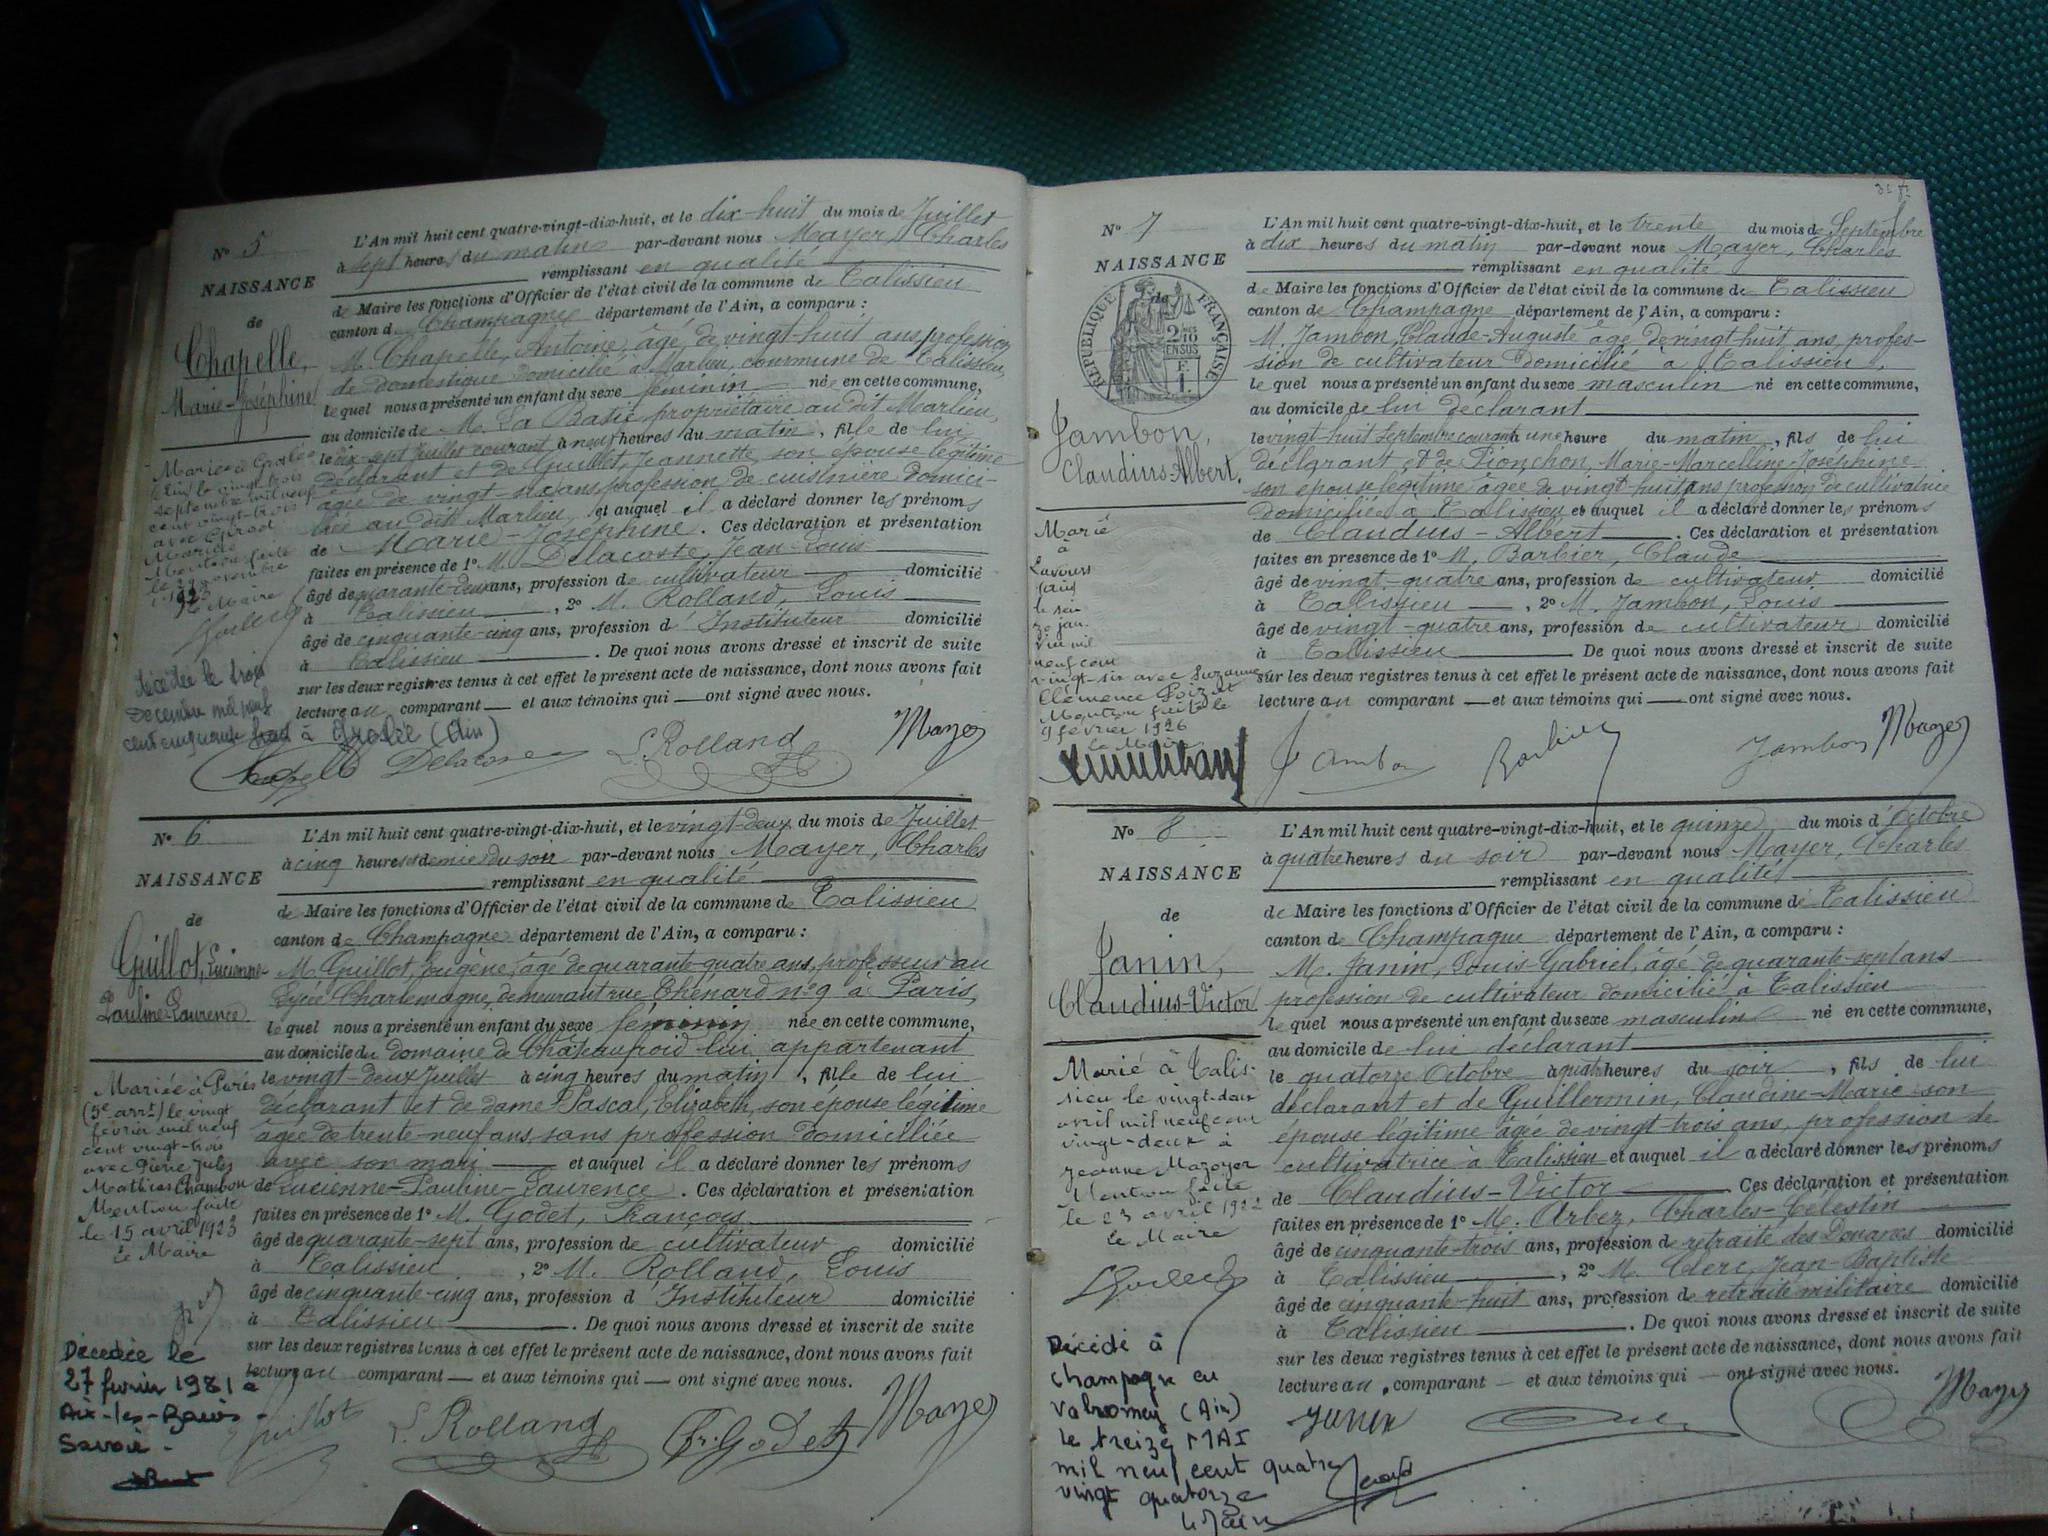 N° 5
NAISSANCE
de
Chapelle,
Marie-Joséphine
L'An mil huit cent quatre-vingt-dix-huit, et le dix-huit du mois de Juillet
à sept heures du matin par-devant nous Mayer, Charles
remplissant en qualité
de Maire les fonctions d'Officier de l'état civil de la commune de Talissieu
canton de Champagne département de l'Ain, a comparu :
M. Chapelle, Antoine, âgé de vingt-huit ans, profession
de domestique domicilié à Marlieu, commune de Talissieu,
lequel nous a présenté un enfant du sexe féminin née en cette commune,
au domicile de M. La Batie, propriétaire au dit Marlieu,
le dix-sept Juillet courant à neuf heures du matin, fille de lui
déclarant et de Guillot, Jeannette, son épouse légitime
âgée de vingt-six ans, profession de cuisinière domici-
liée au dit Marlieu, et auquel il a déclaré donner les prénoms
de Marie-Joséphine. Ces déclaration et présentation
faites en présence de 1° M. Delacoste, Jean-Louis
âgé de quarante-deux ans, profession de cultivateur domicilié
à Talissieu, 2° M. Rolland, Louis
âgé de cinquante-cinq ans, profession d'Instituteur domicilié
à Talissieu. De quoi nous avons dressé et inscrit de suite
sur les deux registres tenus à cet effet le présent acte de naissance, dont nous avons fait
lecture au comparant et aux témoins qui ont signé avec nous.
Mariée à Grolée
(Ain) le vingt trois
septembre mil neuf
cent vingt-trois
avec
Mention faite
le novembre
1923
Le Maire
Décédée le trois
Decembre mil neuf
cent cinquante à Grolée (Ain)
Chapelle Delacoste L. Rolland Mayer
N° 6
NAISSANCE
de
Guillot, Lucienne
Pauline-Laurence
L'An mil huit cent quatre-vingt-dix-huit, et le vingt-deux du mois de Juillet
à cinq heures et demie du soir par-devant nous Mayer, Charles
remplissant en qualité
de Maire les fonctions d'Officier de l'état civil de la commune de Talissieu
canton de Champagne département de l'Ain, a comparu :
M. Guillot, Eugène, âgé de quarante-quatre ans, professeur au
Lycée Charlemagne, demeurant rue Thénard n° 9 à Paris,
lequel nous a présenté un enfant du sexe féminin née en cette commune,
au domicile du domaine de Châteaufroid lui appartenant
le vingt-deux Juillet à cinq heures du matin, fille de lui
déclarant et de dame Pascal, Elizabeth, son épouse légitime
âgée de trente-neuf ans, sans profession domiciliée
avec son mari et auquel il a déclaré donner les prénoms
de Lucienne-Pauline-Laurence. Ces déclaration et présentation
faites en présence de 1° M. Godet, François
âgé de quarante-sept ans, profession de cultivateur domicilié
à Talissieu, 2° M. Rolland, Louis
âgé de cinquante-cinq ans, profession d'Instituteur domicilié
à Talissieu. De quoi nous avons dressé et inscrit de suite
sur les deux registres tenus à cet effet le présent acte de naissance, dont nous avons fait
lecture au comparant et aux témoins qui ont signé avec nous.
Mariée à Paris
(5e arrt) le vingt
février mil neuf
cent vingt-trois
avec Pierre Jules
Mathieu Chambon
Mention faite
le 15 avril 1923
Le Maire
Décédée le
27 fevrier 1981 à
Aix-les-Bains -
Savoie -
Guillot L. Rolland Fr. Godet Mayer
N° 7
NAISSANCE
de
RÉPUBLIQUE FRANÇAISE
Jambon,
Claudius-Albert.
L'An mil huit cent quatre-vingt-dix-huit, et le trente du mois de Septembre
à dix heures du matin par-devant nous Mayer, Charles
remplissant en qualité
de Maire les fonctions d'Officier de l'état civil de la commune de Talissieu
canton de Champagne département de l'Ain, a comparu :
M. Jambon, Claude-Auguste âgé de vingt-huit ans, profes-
sion de cultivateur domicilié à Talissieu,
lequel nous a présenté un enfant du sexe masculin né en cette commune,
au domicile de lui déclarant
le vingt-huit Septembre courant à une heure du matin, fils de lui
déclarant et de Pionchon, Marie-Marcelline-Joséphine
son épouse légitime âgée de vingt huit ans profession de cultivatrice
domiciliée à Talissieu et auquel il a déclaré donner les prénoms
de Claudius-Albert. Ces déclaration et présentation
faites en présence de 1° M. Barbier, Claude
âgé de vingt-quatre ans, profession de cultivateur domicilié
à Talissieu, 2° M. Jambon, Louis
âgé de vingt-quatre ans, profession de cultivateur domicilié
à Talissieu De quoi nous avons dressé et inscrit de suite
sur les deux registres tenus à cet effet le présent acte de naissance, dont nous avons fait
lecture au comparant et aux témoins qui ont signé avec nous.
Marié
à
Lavours
(Ain)
le sei
ze jan.
vier mil
neuf cent
vingt-six avec Suzanne
Clémence Poizat
Mention faite le
9 février 1926
Le Maire
Jambon Barbier Jambon Mayer
N° 8
NAISSANCE
de
Janin,
Claudius-Victor
L'An mil huit cent quatre-vingt-dix-huit, et le quinze du mois d'Octobre
à quatre heures du soir par-devant nous Mayer, Charles
remplissant en qualités
de Maire les fonctions d'Officier de l'état civil de la commune de Talissieu
canton de Champagne département de l'Ain, a comparu :
M. Janin, Louis-Gabriel, âgé de quarante-sept ans
profession de cultivateur domicilié à Talissieu
lequel nous a présenté un enfant du sexe masculin né en cette commune,
au domicile de lui déclarant
le quatorze Octobre à quatre heures du soir, fils de lui
déclarant et de Guillermin, Claudine-Marie son
épouse légitime âgée de vingt-trois ans, profession de
cultivatrice à Talissieu et auquel il a déclaré donner les prénoms
de Claudius-Victor Ces déclaration et présentation
faites en présence de 1° M. Arbez, Charles-Célestin
âgé de cinquante-trois ans, profession de retraité des Douanes domicilié
à Talissieu, 2° M. Clerc, Jean-Baptiste
âgé de cinquante-huit ans, profession de retraité militaire domicilié
à Talissieu. De quoi nous avons dressé et inscrit de suite
sur les deux registres tenus à cet effet le présent acte de naissance, dont nous avons fait
lecture au comparant et aux témoins qui ont signé avec nous.
Marié à Talis-
sieu le vingt-deux
avril mil neuf cent
vingt-deux à
Jeanne Mazoyer
Mention faite
le 23 avril 1922
Le Maire
Décédé à
champagne en
valromey (Ain)
le treize MAI
mil neuf cent quatre
vingt quatorze
Le Maire
Janin Mayer